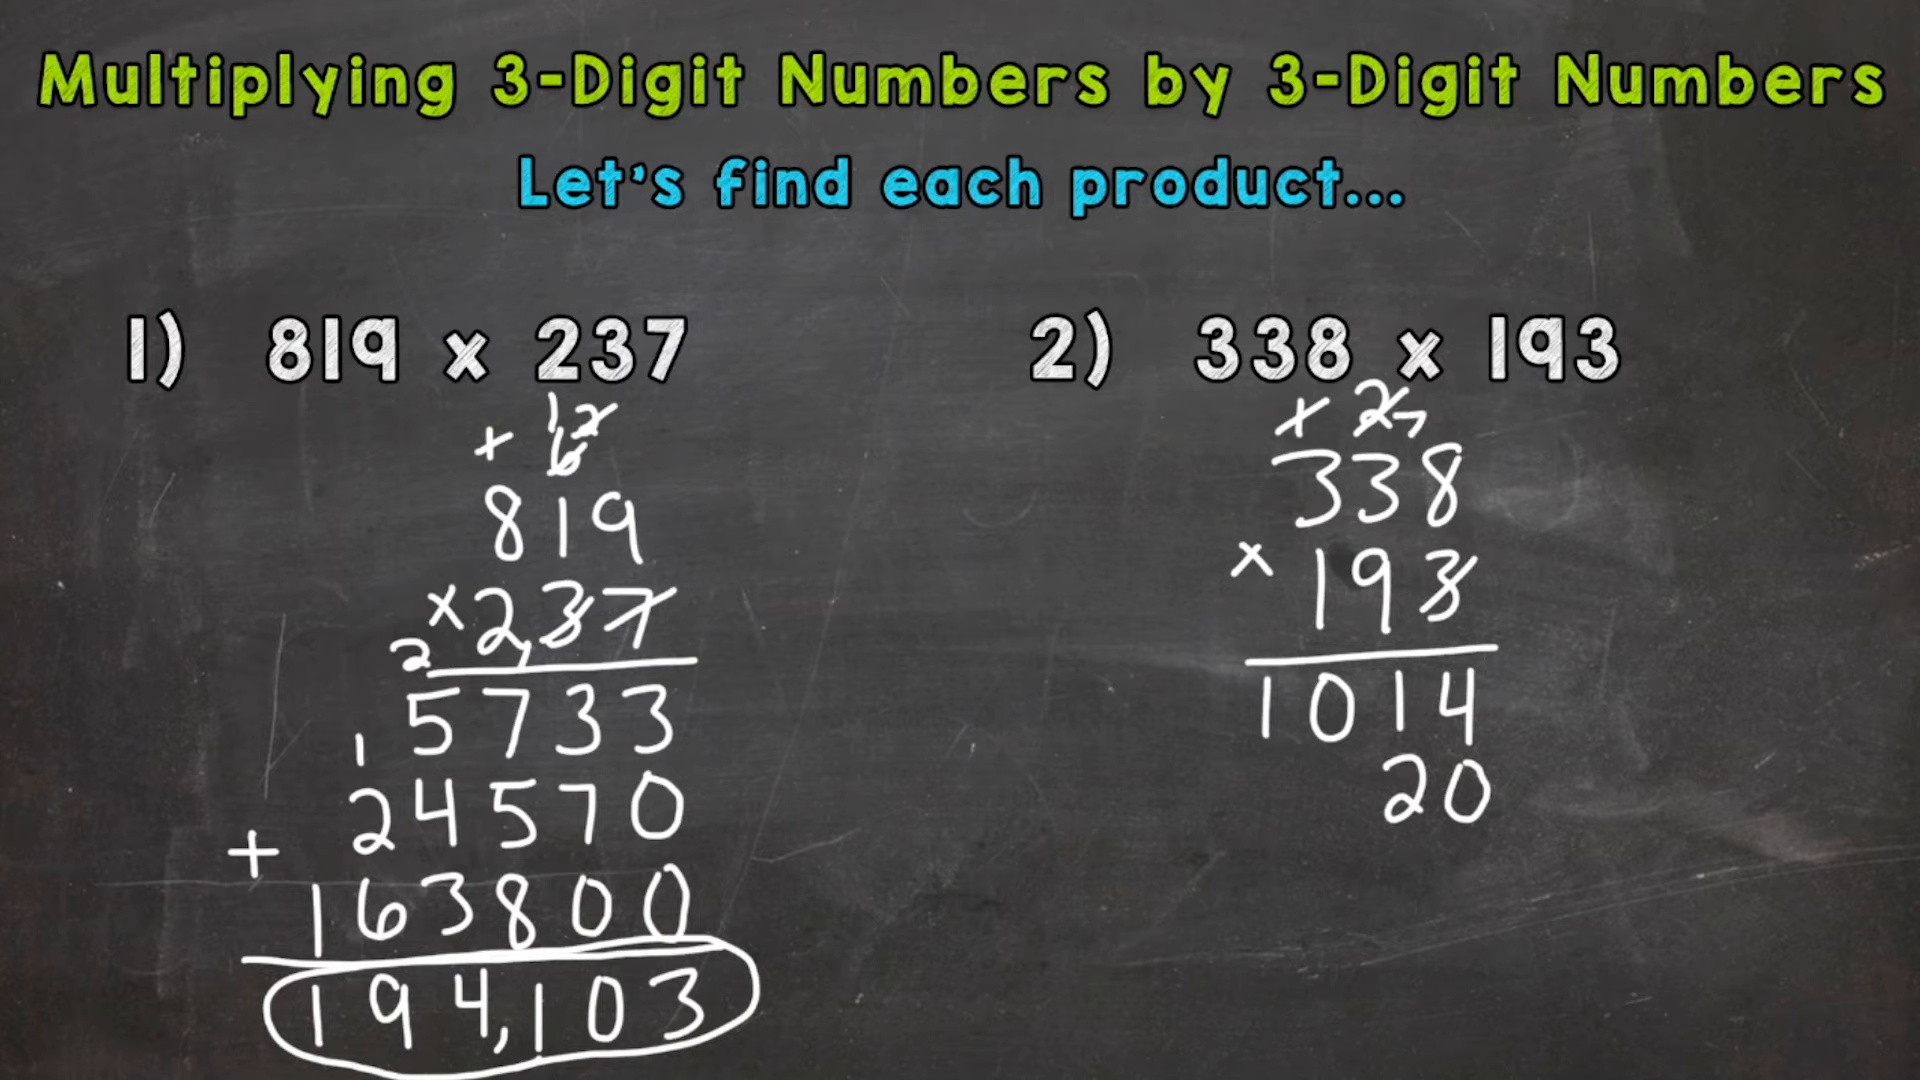 Multiplying 3-Digit Numbers by 3-Digit Numbers
Let's find each product...
1) 819 x 237
1 2
+ 6
819
x 2,37
2
5733
1
24570
+
163800
194,103
2) 338 x 193
+ 2 7
338
x 193
1014
20